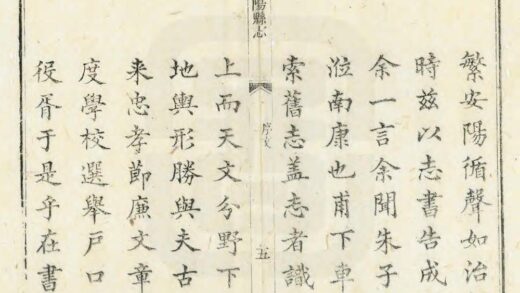 繁安陽循聲如治
時茲以志書告成
余一言余聞朱子
涖南康也甫下車
索舊志盖志者識
陽縣志
序文
五
上而天文分野下
地輿形勝與夫古
来忠孝節廉文章
度學校選舉戸口
役胥于是乎在書